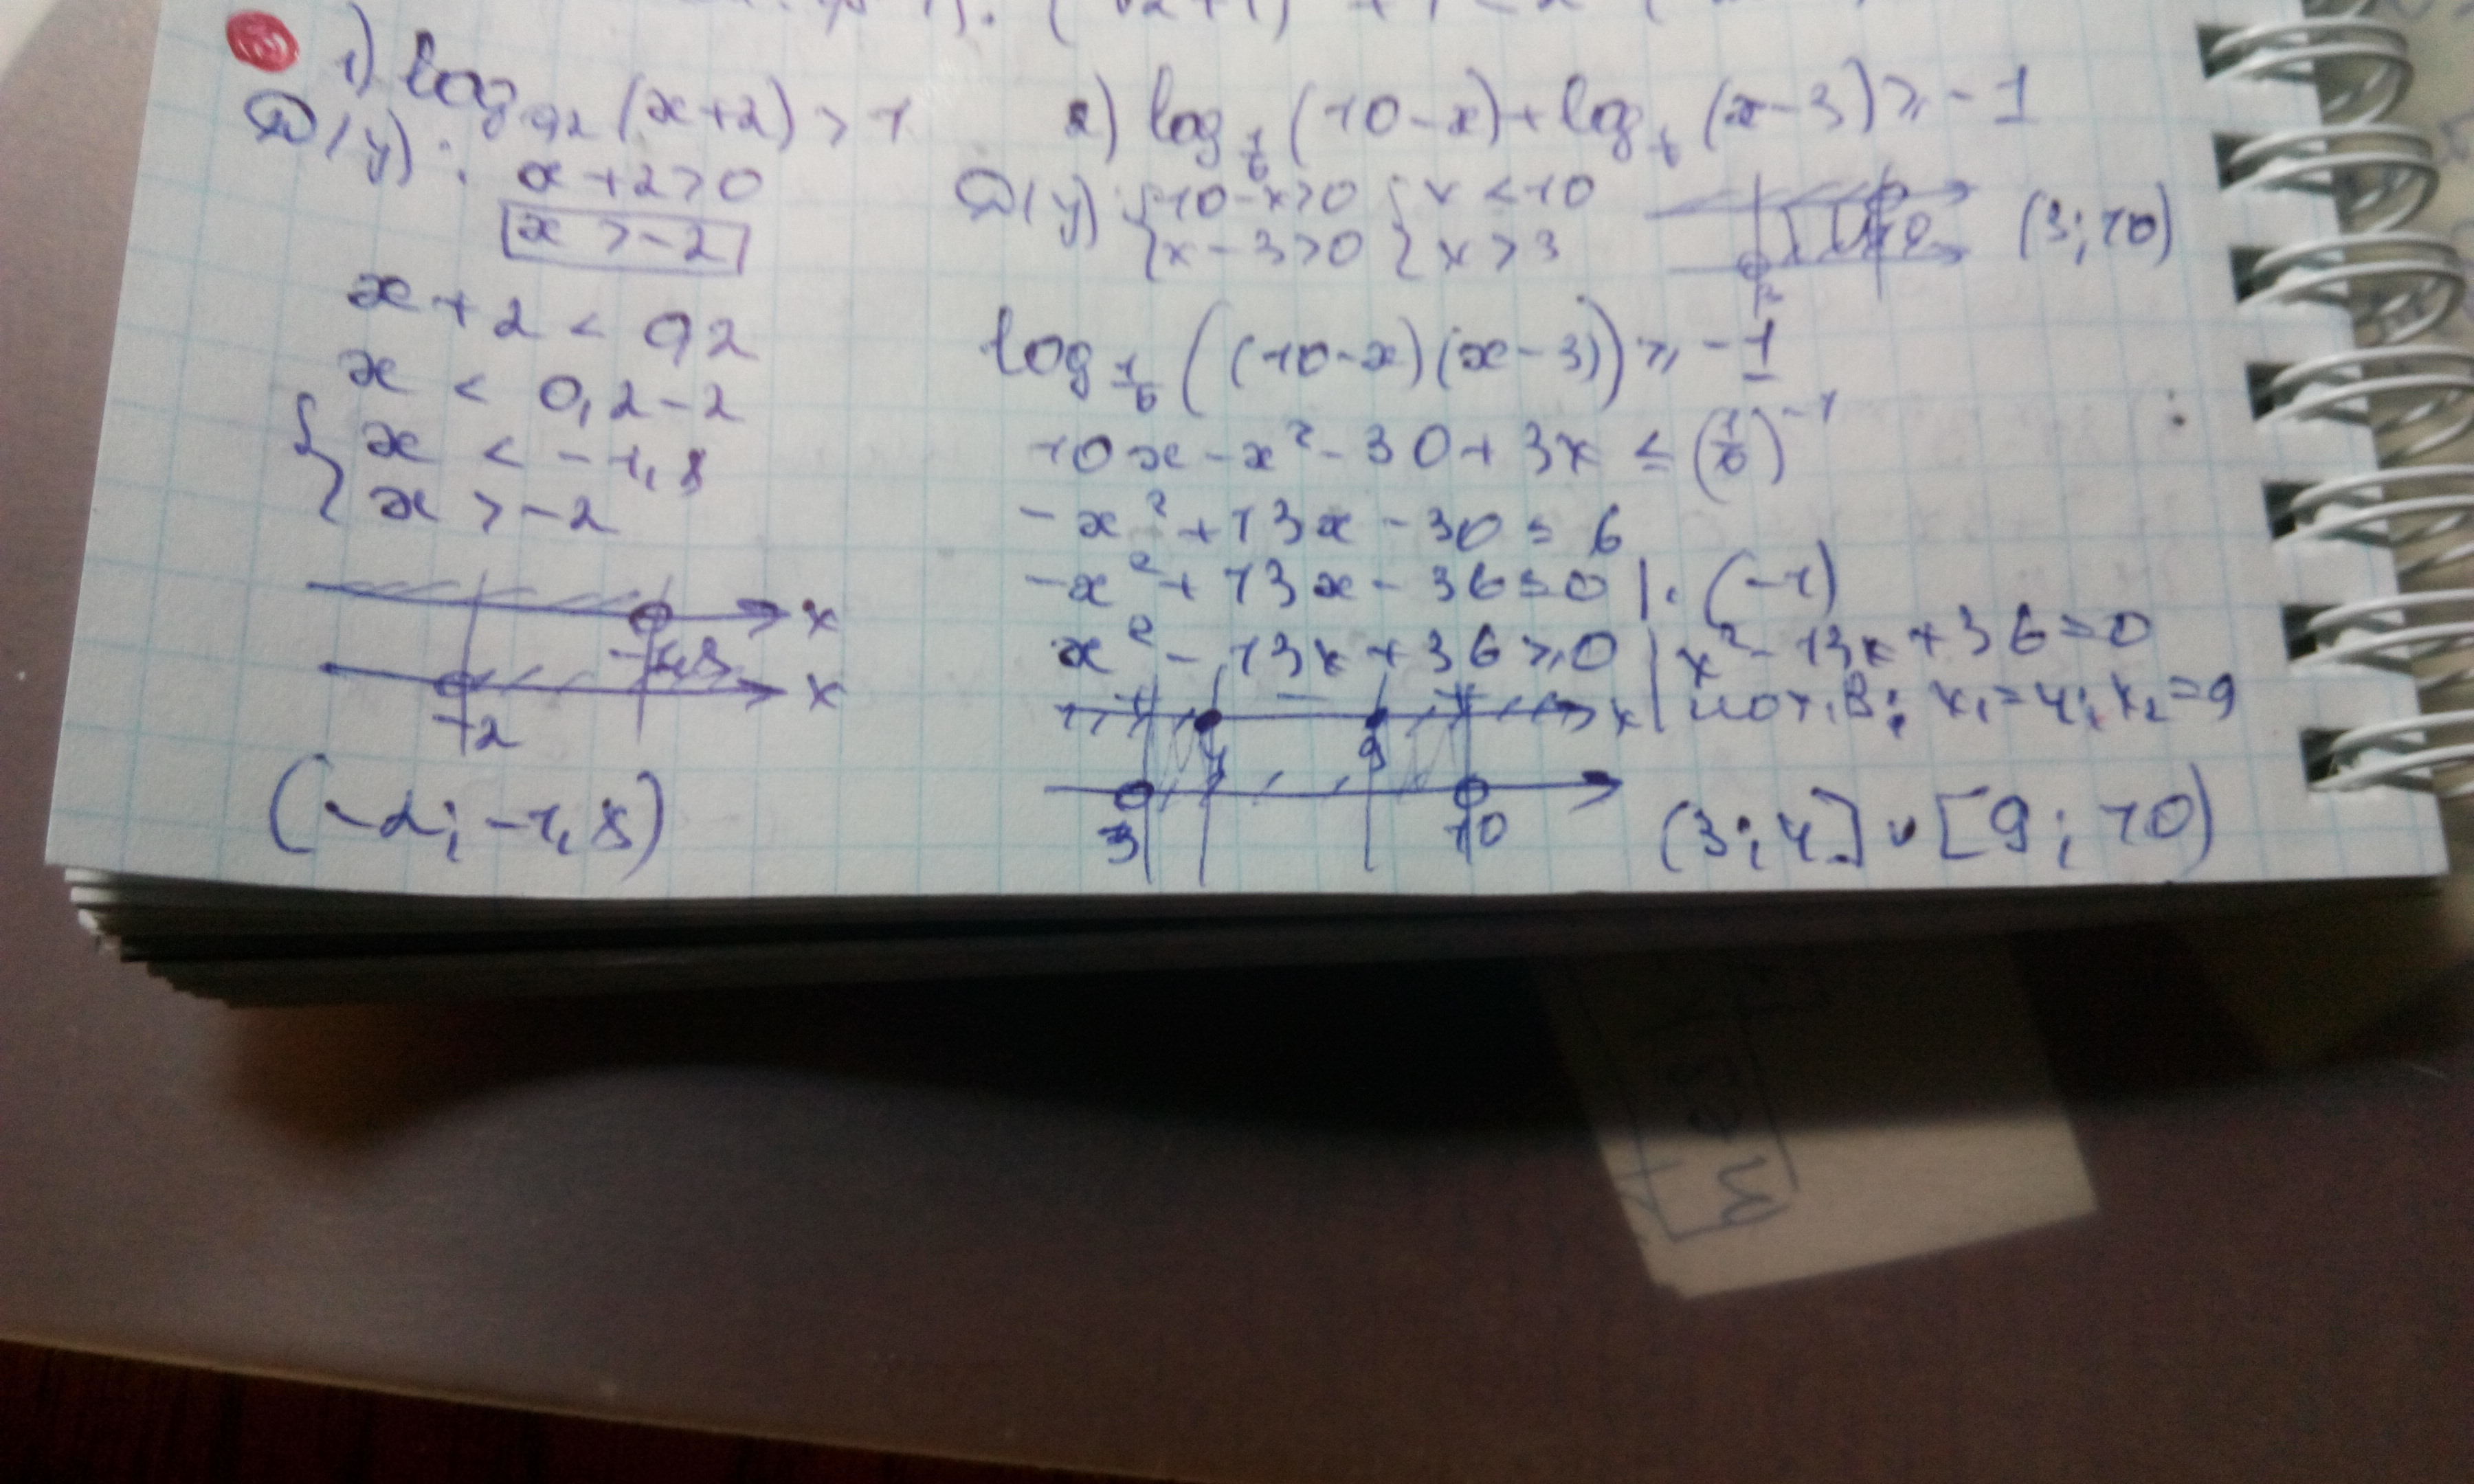 1) log₀,₂ (x+2) > 1
D(y): x+2>0
x > -2
x+2 < 0,2
x < 0,2-2
{ x < -1,8
x > -2
x
-1,8
x
-2
(-2; -1,8)
2) log 1/6 (10-x) + log 1/6 (x-3) ⩾ -1
D(y) { 10-x>0 { x < 10
x-3>0 x > 3
(3; 10)
log 1/6 ((10-x)(x-3)) ⩾ -1
10x - x² - 30 + 3x ≤ (1/6)⁻¹
-x² + 13x - 30 ≤ 6
-x² + 13x - 36 ≤ 0 | · (-1)
x² - 13x + 36 ⩾ 0 | x² - 13x + 36 = 0
по т. В: x₁ = 4; x₂ = 9
+ - + x
4 9
3 10
(3; 4] ∪ [9; 10)